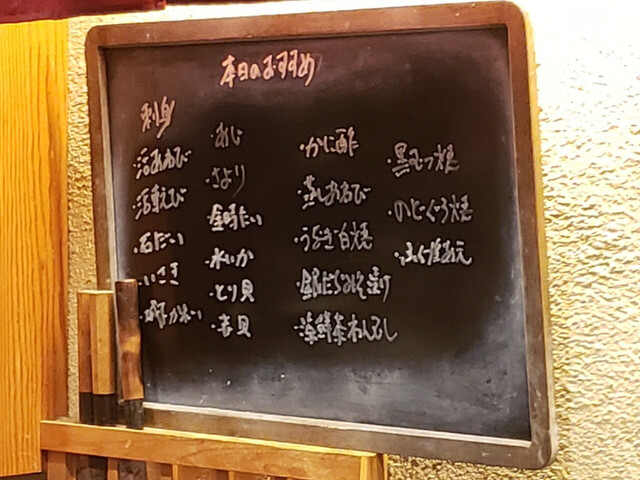 本日のおすすめ
刺身
・活あわび
・活車えび
・石だい
・いさき
・城下かれい
・あじ
・さより
・金時だい
・水いか
・とり貝
・赤貝
・かに酢
・蒸しあわび
・うなぎ白焼
・銀だらみそ漬け
・海鮮茶わんむし
・黒むつ焼
・のどぐろ焼